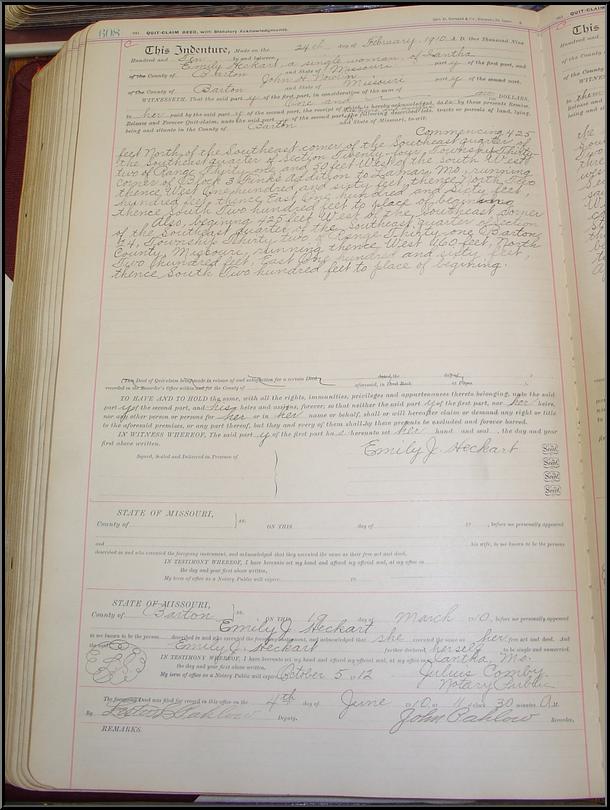 608
QUIT-CLAIM DEED, with Statutory Acknowledgments.
This Indenture, Made on the 24th day of February 1910 A. D. One Thousand Nine
Hundred and Ten by and between
Emily Heckart, a single woman, of Iantha
of the County of Barton and State of Missouri part y of the first part, and
John H.
of the County of Barton and State of Missouri part y of the second part,
WITNESSETH, That the said part y of the first part, in consideration of the sum of
One and DOLLARS,
to her paid by the said part y of the second part, the receipt of which is hereby acknowledged, do by these presents Remise,
Release and Forever Quit-claim, unto the said part y of the second part, the following described lots, tracts or parcels of land, lying,
being and situate in the County of Barton and State of Missouri, to-wit:
Commencing 425
feet North of the Southeast corner of the Southeast quarter of
the Southeast quarter of Section Twenty four, Township Thirty
two of Range Thirty one and 30 feet West of the South West
corner of Block 3 Addition to Lamar, Mo, running
thence West One hundred and sixty feet, thence North Two
hundred feet, thence East One hundred and sixty feet,
thence South Two hundred feet to place of beginning
Also, beginning 425 feet West of the Southeast corner
of the Southeast quarter of the Southeast quarter of Section
24, Township Thirty two of Range Thirty-one, Barton
County, Missouri, running thence West 160 feet, North
Two hundred feet, East One hundred and sixty feet,
thence South Two hundred feet to place of begining.
(This Deed of Quit-claim being made in release of and satisfaction for a certain Deed dated, the day of
recorded in the Recorder's Office within and for the County of aforesaid, in Deed Book at Pages )
TO HAVE AND TO HOLD the same, with all the rights, immunities, privileges and appurtenances thereto belonging, unto the said
part y of the second part, and his heirs and assigns, forever; so that neither the said part y of the first part, nor her heirs,
nor any other person or persons for her or in her name or behalf, shall or will hereafter claim or demand any right or title
to the aforesaid premises, or any part thereof, but they and every of them shall by these presents be excluded and forever barred.
IN WITNESS WHEREOF, The said part y of the first part has hereunto set her hand and seal the day and year
first above written.
Emily J. Heckart Seal
Signed, Sealed and Delivered in Presence of
Seal
Seal
Seal
STATE OF MISSOURI,
County of ss. ON THIS day of 19 , before me personally appeared
and his wife, to me known to be the persons
described in and who executed the foregoing instrument, and acknowledged that they executed the same as their free act and deed.
IN TESTIMONY WHEREOF, I have hereunto set my hand and affixed my official seal, at my office in
the day and year first above written.
My term of office as a Notary Public will expire 19
STATE OF MISSOURI,
County of Barton ss. ON THIS 19 day of March 1910, before me personally appeared
Emily J. Heckart
to me known to be the person described in and who executed the foregoing instrument, and acknowledged that she executed the same as her free act and deed. And
the said Emily J. Heckart further declared herself to be single and unmarried.
IN TESTIMONY WHEREOF, I have hereunto set my hand and affixed my official seal, at my office in Iantha, Mo.
the day and year first above written.
My term of office as a Notary Public will expire October 5 1912 Julius
Notary Public
The foregoing Deed was filed for record in this office on the 4th day of June 1910, at 11 o'clock 30 minutes A. M.
By Deputy. John Pahlow Recorder.
REMARKS.